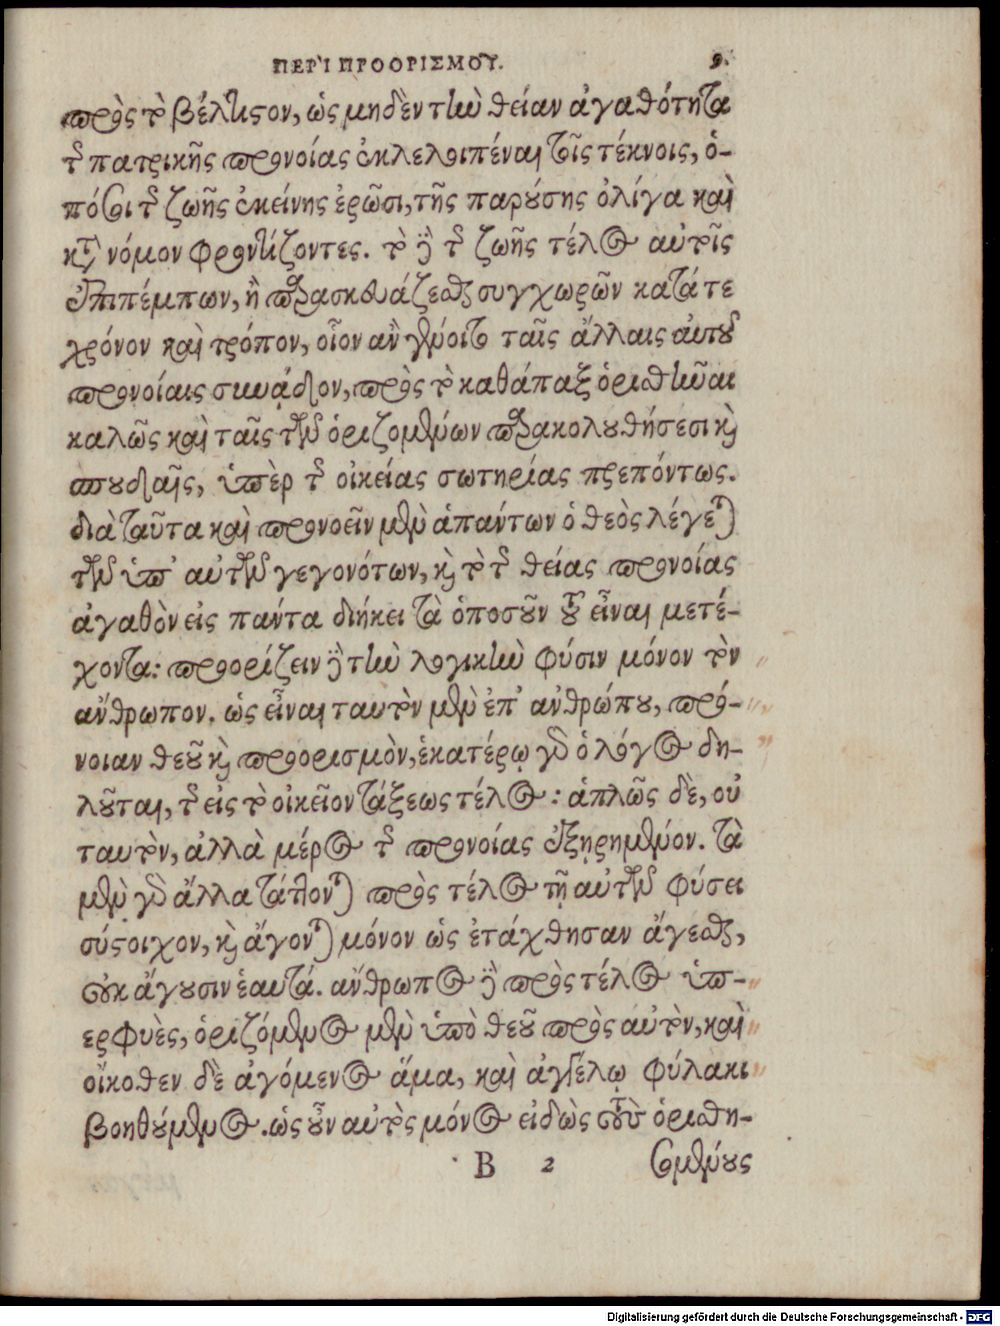 ΠΕΡῚ ΠΡΟΟΡΙΣΜΟΥ. 9.
πρὸς τὸ βέλτιστον, ὡς μηδὲν τὴν θείαν ἀγαθότητα
τῆς πατρικῆς προνοίας ἐκλελοιπέναι τοῖς τέκνοις, ὁ-
πόσοι τῆς ζωῆς ἐκείνης ἐρῶσι, τῆς παρούσης ὀλίγα καὶ
κατὰ νόμον φροντίζοντες. τὸ δὲ τῆς ζωῆς τέλος αὐτοῖς
ἐπιπέμπων, ἢ παρασκευάζεσθαι συγχωρῶν κατά τε
χρόνον καὶ τρόπον, οἷον ἂν γένοιτο ταῖς ἄλλαις αὐτοῦ
προνοίαις συνᾴδον, πρὸς τὸ καθάπαξ ὁρισθῆναι
καλῶς καὶ ταῖς τῶν ὁριζομένων παρακολουθήσεσι καὶ
σπουδαῖς, ὑπὲρ τῆς οἰκείας σωτηρίας πρεπόντως.
διὰ ταῦτα καὶ προνοεῖν μὲν ἁπάντων ὁ θεὸς λέγεται
τῶν ὑπ' αὐτῶν γεγονότων, καὶ τὸ τῆς θείας προνοίας
ἀγαθὸν εἰς πάντα διήκει τὰ ὁποσοῦν τοῦ εἶναι μετέ-
χοντα: προορίζειν δὲ τὴν λογικὴν φύσιν μόνον τὸν
ἄνθρωπον. ὡς εἶναι ταυτὸν μὲν ἐπ' ἀνθρώπου, πρό-
νοιαν θεοῦ καὶ προορισμὸν, ἑκατέρῳ γὰρ ὁ λόγος δη-
λοῦται, τῆς εἰς τὸ οἰκεῖον τάξεως τέλος: ἁπλῶς δὲ, οὐ
ταυτὸν, ἀλλὰ μέρος τῆς προνοίας ἐξῃρημένον. τὰ
μὲν γὰρ ἄλλα τάττονται πρὸς τέλος τῇ αὐτῶν φύσει
σύστοιχον, καὶ ἄγονται μόνον ὡς ἐτάχθησαν ἄγεσθαι,
οὐκ ἄγουσιν ἑαυτά. ἄνθρωπος δὲ πρὸς τέλος ὑπ-
ερφυὲς, ὁριζόμενος μὲν ὑπὸ θεοῦ πρὸς αὐτὸν, καὶ
οἴκοθεν δὲ ἀγόμενος ἅμα, καὶ ἀγγέλῳ φύλακι
βοηθούμενος. ὡς οὖν αὐτὸς μόνος εἰδὼς τοὺς ὁρισθη-
B 2 σομένους